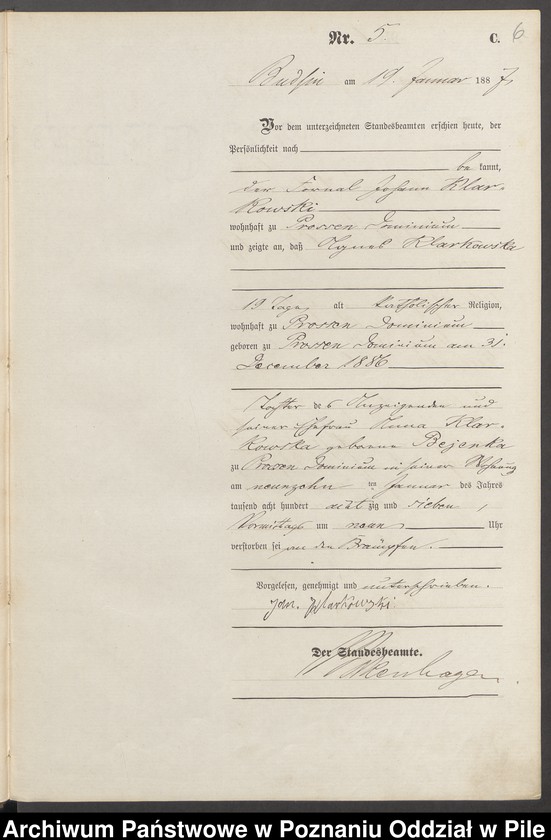 Nr. 5. C. 6
Budsin am 19. Januar 1887
Vor dem unterzeichneten Standesbeamten erschien heute, der
Persönlichkeit nach
bekannt,
der Fornal Johann Klar-
kowski
wohnhaft zu Prossen Dominium
und zeigte an, daß Agnes Klarkowska
19 Tage alt katholischer Religion,
wohnhaft zu Prossen Dominium
geboren zu Prossen Dominium am 31.
December 1886
Tochter des Anzeigenden und
seiner Ehefrau Anna Klar-
kowska geborene Bejenka
zu Prossen Dominium in seiner Wohnung
am neunzehn ten Januar des Jahres
tausend acht hundert achtzig und sieben,
Vormittags um neun Uhr
verstorben sei an den Krämpfen.
Vorgelesen, genehmigt und unterschrieben.
Jan. Klarkowski
Der Standesbeamte.
Archiwum Państwowe w Poznaniu Oddział w Pile